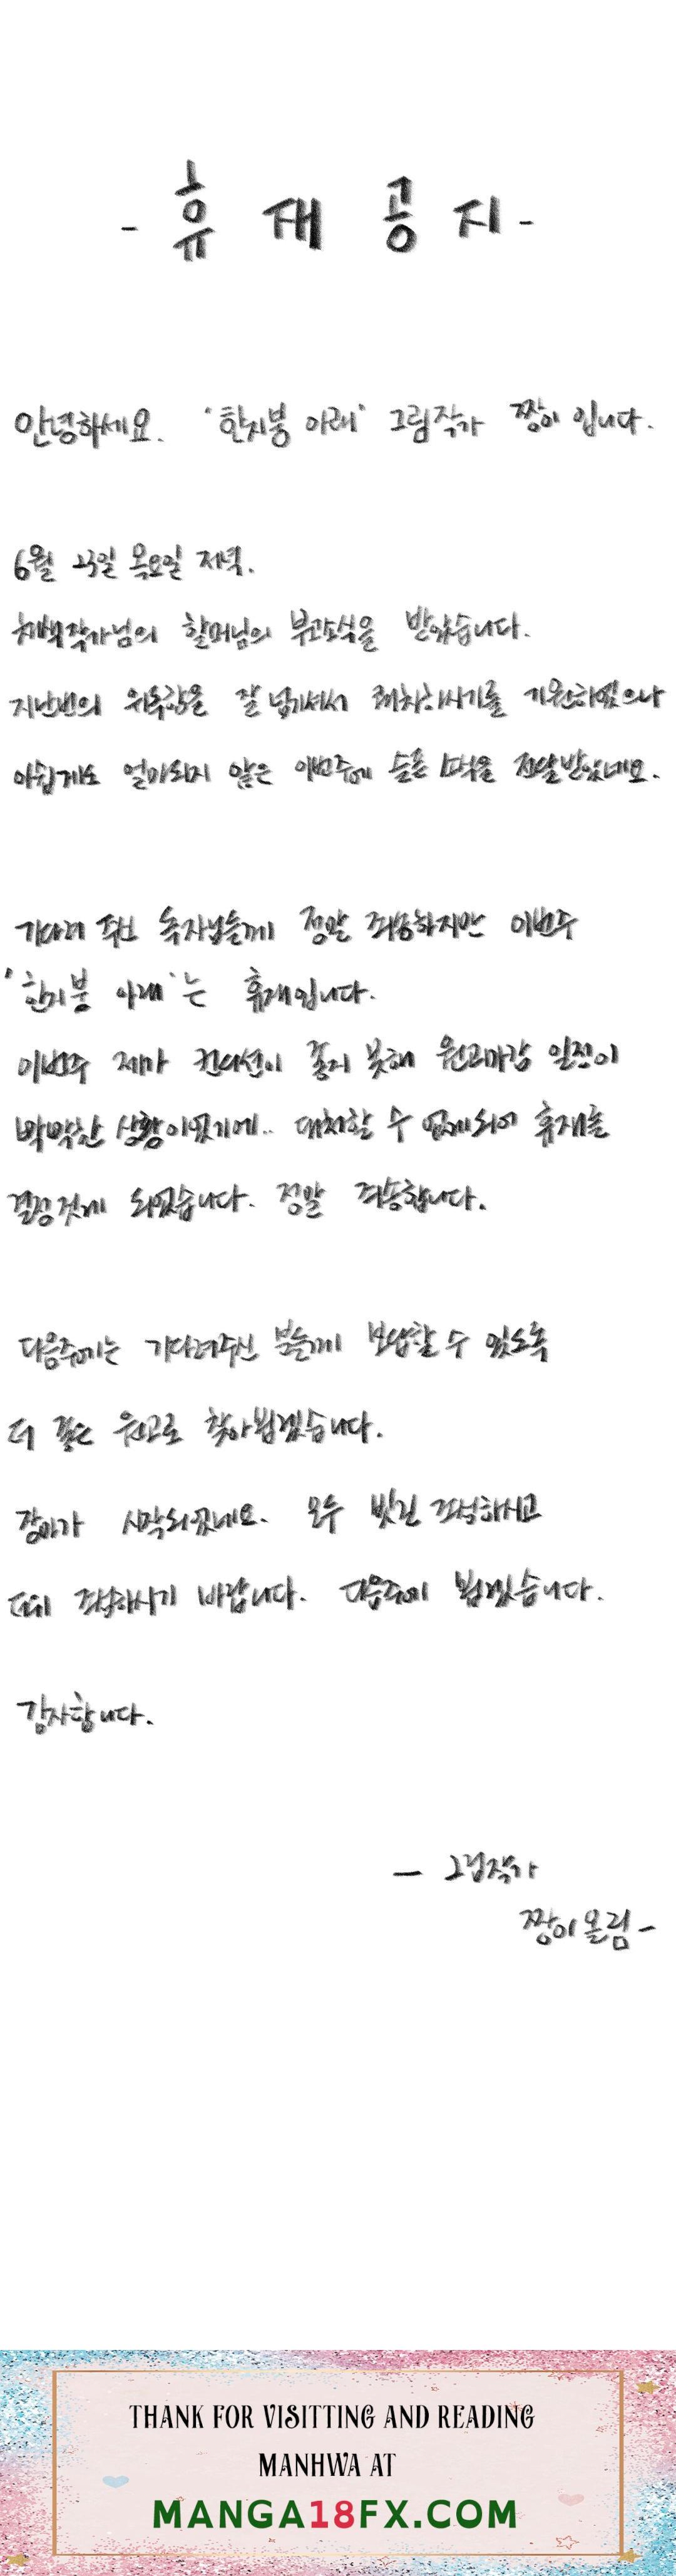 - 휴 재 공 지 -
안녕하세요. '한지붕 아래' 그림작가 짱이 입니다.
6월 23일 목요일 저녁.
작가님의 할머님의 부고소식을 받았습니다.
지난번의 잘 넘기셔서 쾌차하시기를 기원하였으나
아쉽게도 얼마되지 않은 이번주에 슬픈 소식을 전달받았네요.
기다려 주신 독자님들께 정말 죄송하지만 이번주
'한지붕 아래'는 휴재입니다.
이번주 제가 컨디션이 좋지 못해 원고마감 일정이
빡빡한 상황이였기에.. 대처할 수 없게되어 휴재를
결정짓게 되었습니다. 정말 죄송합니다.
다음주에는 기다려주신 분들께 보답할 수 있도록
더 좋은 원고로 찾아뵙겠습니다.
장마가 시작되었네요. 모두 빗길 조심하시고
바랍니다. 다음주에 뵙겠습니다.
감사합니다.
- 그림작가
짱이 올림 -
THANK FOR VISITTING AND READING
MANHWA AT
MANGA18FX.COM